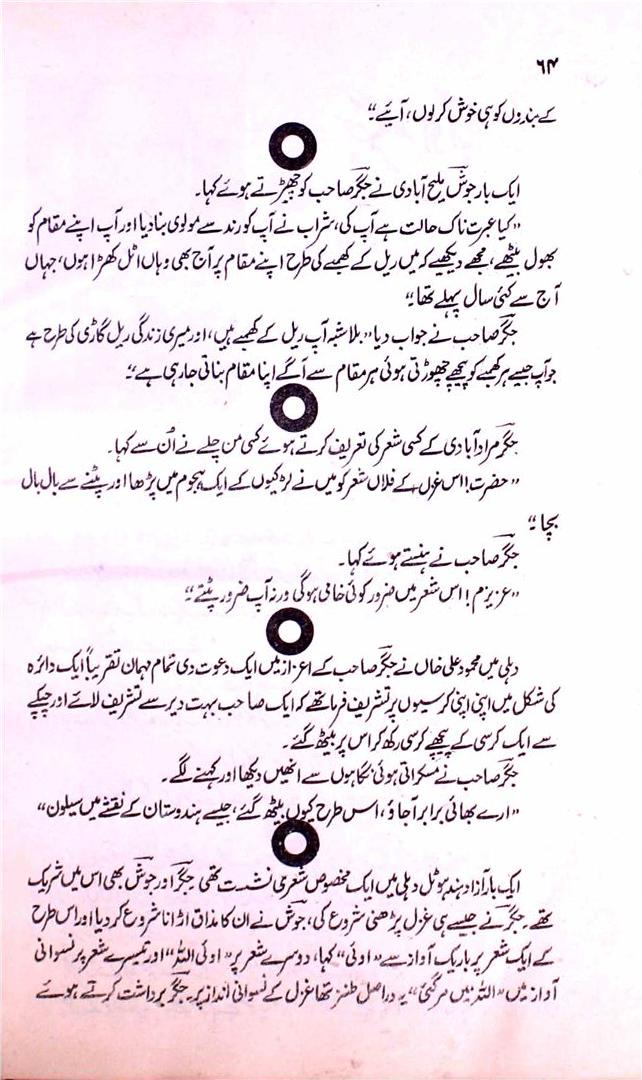 ۶۴
کے بندوں کو ہی خوش کر لوں، آیئے۔“
ایک بار جوشؔ ملیح آبادی نے جگرؔ صاحب کو چھیڑتے ہوئے کہا۔
”کیا عبرت ناک حالت ہے آپ کی، شراب نے آپ کو رند سے مولوی بنا دیا اور آپ اپنے مقام کو
بھول بیٹھے، مجھے دیکھیے کہ میں ریل کے کھمبے کی طرح اپنے مقام پر آج بھی وہاں اٹل کھڑا ہوں، جہاں
آج سے کئی سال پہلے تھا۔“
جگرؔ صاحب نے جواب دیا ”بلاشبہ آپ ریل کے کھمبے ہیں، اور میری زندگی ریل گاڑی کی طرح ہے
جو آپ جیسے ہر کھمبے کو پیچھے چھوڑتی ہوئی ہر مقام سے آگے اپنا مقام بناتی جا رہی ہے“۔
جگرؔ مراد آبادی کے کسی شعر کی تعریف کرتے ہوئے کسی من چلے نے اُن سے کہا۔
”حضرت! اس غزل کے فلاں شعر کو میں نے لڑکیوں کے ایک ہجوم میں پڑھا اور پٹنے سے بال بال
بچا۔“
جگرؔ صاحب نے ہنستے ہوئے کہا۔
”عزیزم! اس شعر میں ضرور کوئی خامی ہوگی ورنہ آپ ضرور پٹتے“۔
دہلی میں محمود علی خاں نے جگرؔ صاحب کے اعزاز میں ایک دعوت دی تمام مہمان تقریباً ایک دائرہ
کی شکل میں اپنی اپنی کرسیوں پر تشریف فرما تھے کہ ایک صاحب بہت دیر سے تشریف لائے اور چپکے
سے ایک کرسی کے پیچھے کرسی رکھ کر اس پر بیٹھ گئے۔
جگرؔ صاحب نے مسکراتی ہوئی نگاہوں سے انھیں دیکھا اور کہنے لگے۔
”ارے بھائی برابر آ جاؤ، اس طرح کیوں بیٹھ گئے، جیسے ہندوستان کے نقشے میں سیلون“
ایک بار آزاد ہند ہوٹل دہلی میں ایک مخصوص شعری نشست تھی جگرؔ اور جوشؔ بھی اس میں شریک
تھے۔ جگرؔ نے جیسے ہی غزل پڑھنی شروع کی، جوشؔ نے ان کا مذاق اڑانا شروع کر دیا اور اس طرح
کے ایک شعر پر باریک آواز سے ”اوئی“ کہا، دوسرے شعر پر ”اوئی اللہ“ اور تیسرے شعر پر نسوانی
آواز میں ”اللہ میں مر گئی“ یہ دراصل طنز تھا غزل کے نسوانی انداز پر۔ جگرؔ برداشت کرتے ہوئے